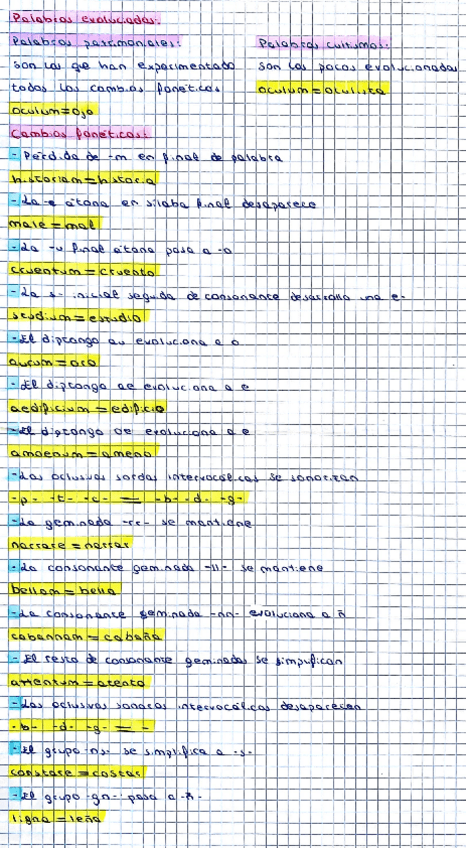 Palabras evolucionadas:
Palabras patrimoniales:
son las qe han experimentado
todos los cambios fonéticos
oculum=ojo
Palabras cultismos:
son las pocas evolucionadas
oculum=oculista
Cambios fonéticos:
-Perdida de -m en final de palabra
historiam=historia
-La -e átona en sílaba final desaparece
male=mal
-La -u final átona pasa a -o
cruentum=cruento
-La s- inicial seguida de consonante desarrolla una e-
studium=estudio
-El diptongo au evoluciona a o
aurum=oro
-El diptongo ae evoluciona a e
aedificium=edificio
-El diptongo oe evoluciona a e
amoenum=ameno
-Las oclusivas sordas intervocálicas se sonorizan
-p- -t- -c- = -b- -d- -g-
-La geminada -rr- se mantiene
narrare=narrar
-La consonante geminada -ll- se mantiene
bellam=bella
-La consonante geminada -nn- evoluciona a ñ
cabannam=cabaña
-El resto de consonante geminadas se simplifican
attentum=atento
-Las oclusivas sonoras intervocálicas desaparecen
-b- -d- -g- = -
-El grupo -ns- se simplifica a -s-
constare=costar
-El grupo -gn- pasa a -ñ-
ligna=leña